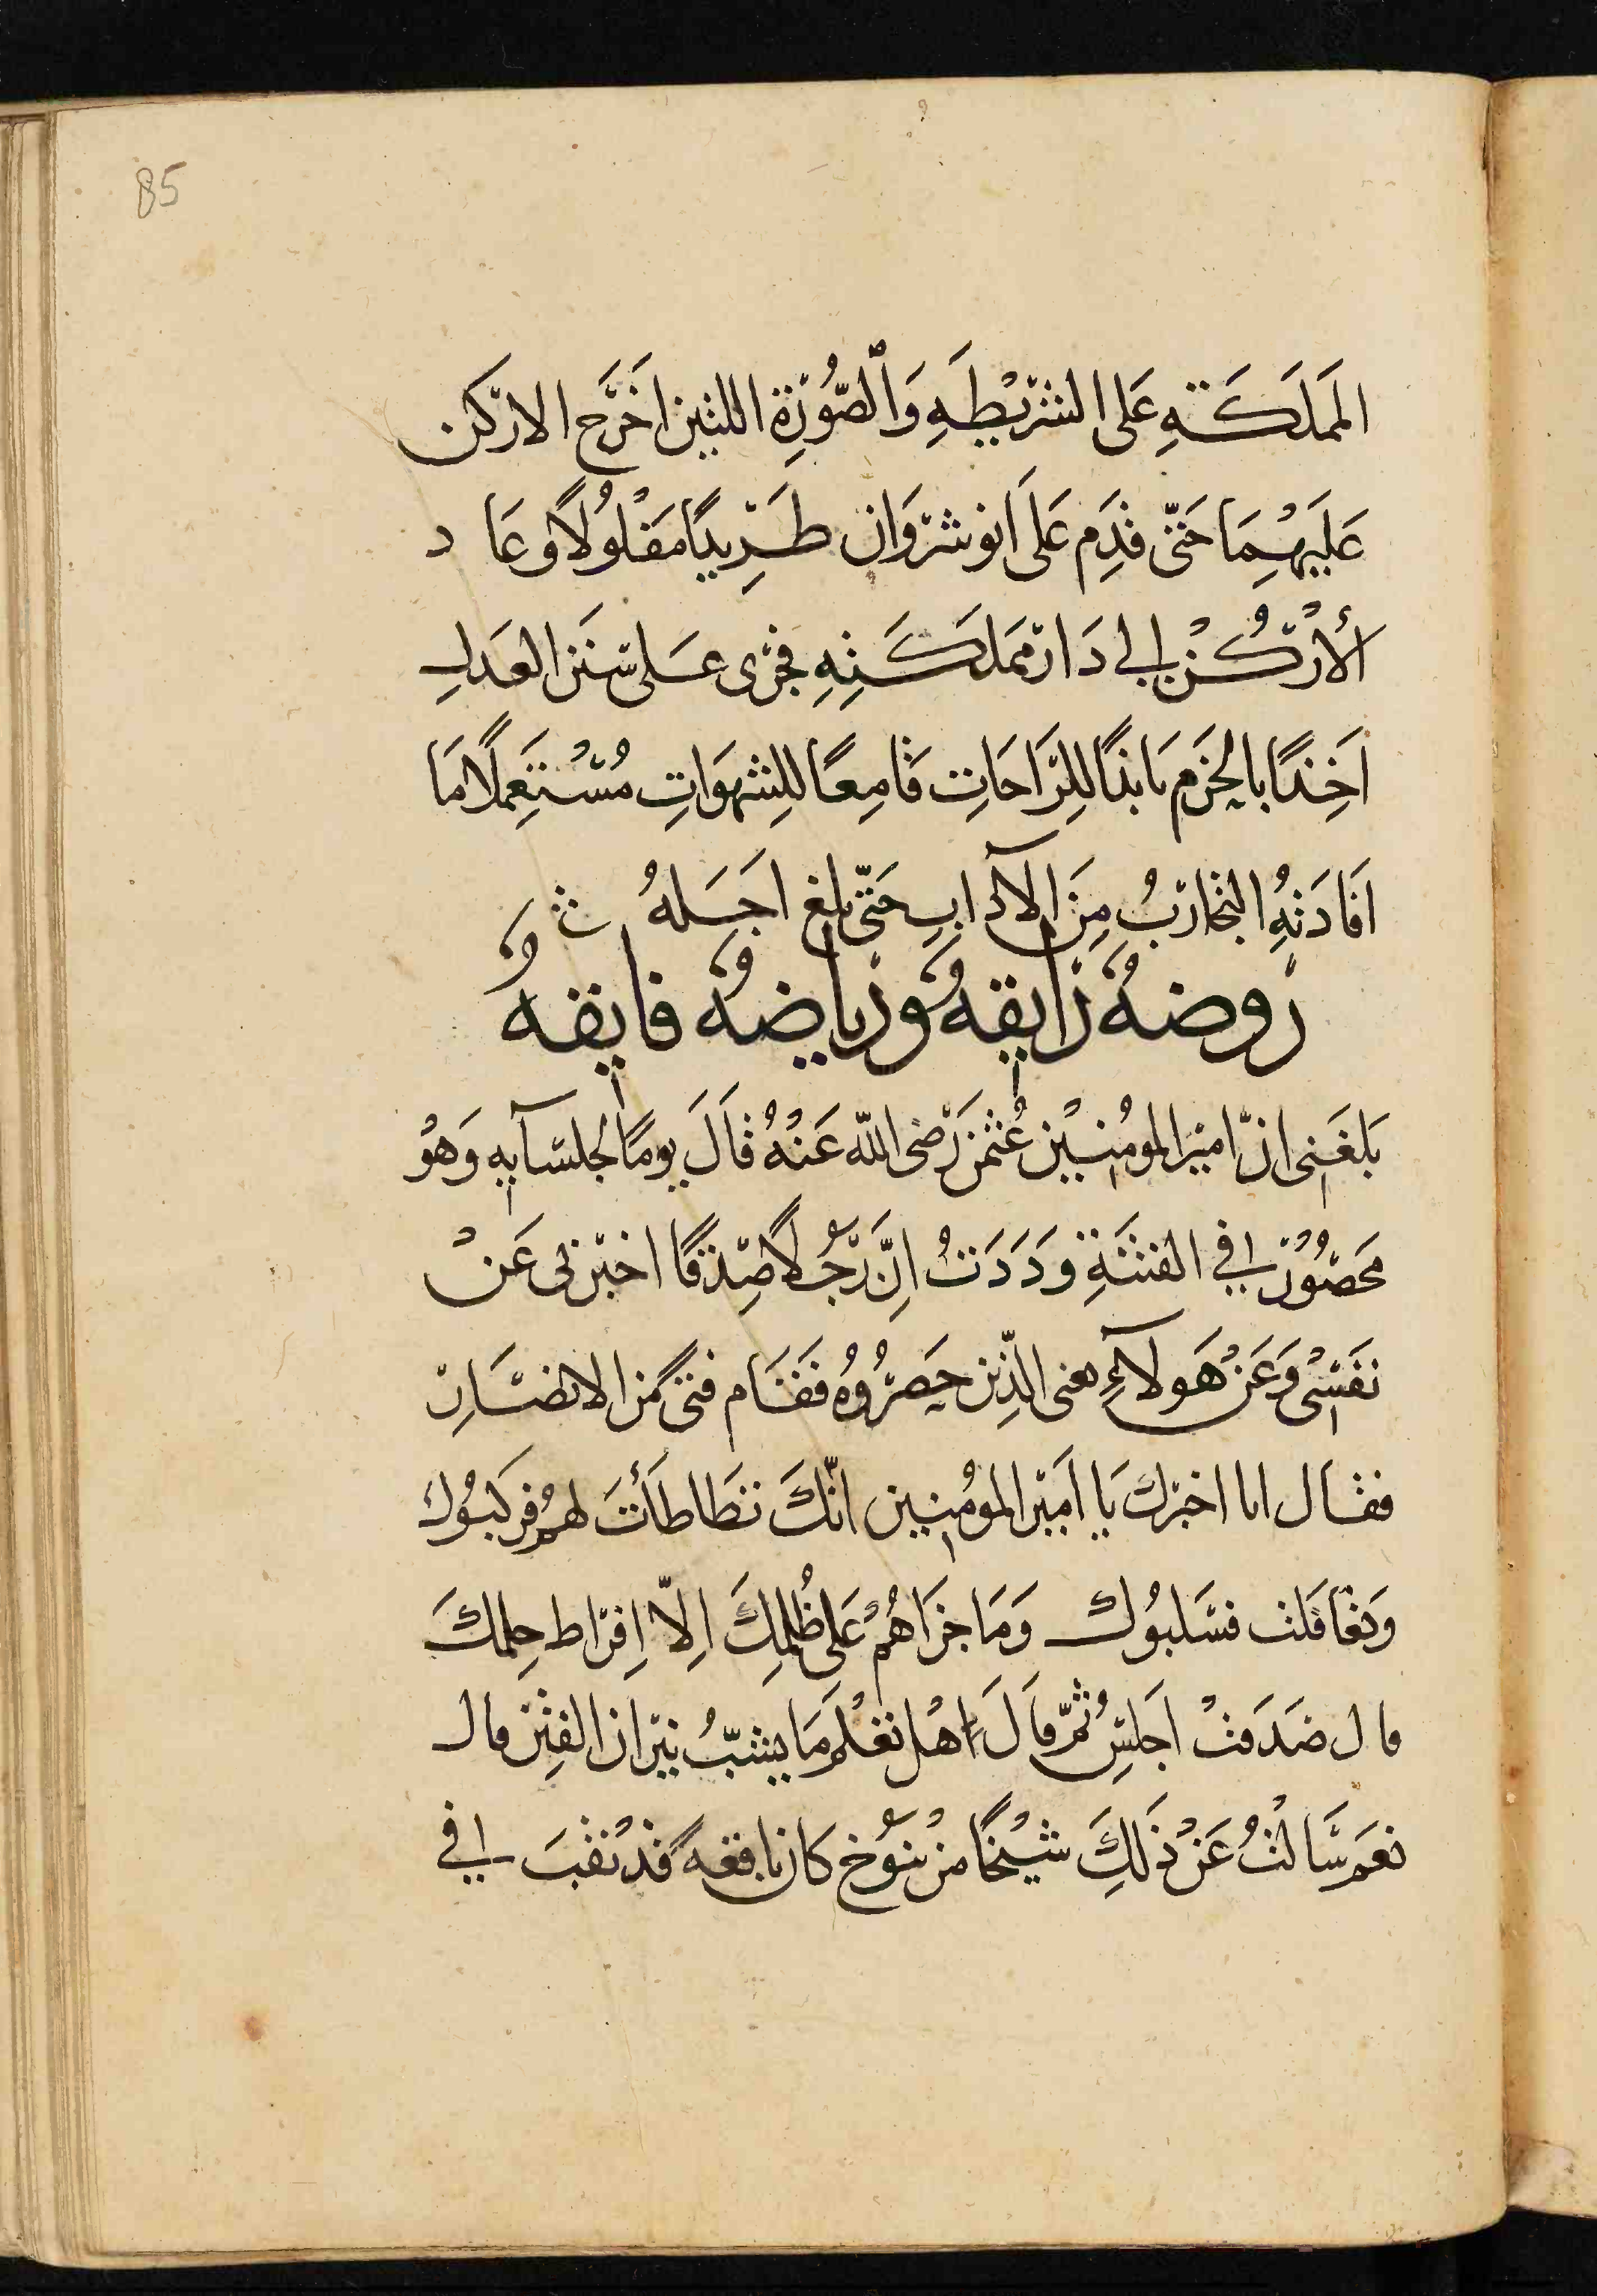 85
المملَكَةِ عَلى الشَّرِيْطَهِ وَالصُّورَةِ اللتين اخَرَج الارْكن
عَليَهْمِا حَتّى قدِم عَلى اَنوشرْوَان طَرِيدًا مَفلوُلًا وعَا د
الأرْكُنْ الى دَار مَملَكَتِهِ فجرَى عَلى سَنَن العَدلِ
اَخِذًا بالحَزم نابذًا للِرَاحَاتِ قامِعًا للِشهوَاتِ مُسْتَعِملًا مَا
اَفَادَتهُ التجارْبُ مِنَ الآدابِ حَتّى بلغ اجَلهُ
رَوضةٌ رَايقةٌ ورياضةٌ فايقةٌ
بَلغَنى انّ اميْر المومُنِيْن عُثمن رَضى اللّه عَنْهُ قَالَ يومًا لجلسآيه وَهوُ
مَحصُوُرْ فى الفتنَةِ وَدَدَتُ اِنَّ رَجُلًا صِدقًا اخبَرنى عَنْ
نفَسْى وَعَنْ هَولآءِ يعنى الذِّين حَصرُوُه فَقَام فتىً من الانصَارِ
فقال انا اخبرْك يَا اَميْر المومُنِين انّكَ تَطاطَأتَ لهُمْ فركبوُك
وَتغافَلت فسَلبوُك وَمَا جَرَاهُمْ عَلى ظُلمِكَ اِلاّ اِفرَاط حِلمكَ
قال صَدَقتْ اجَلسْ ثُمّ قَالَ اهْل تعَلمَ مَا يشبّ نيْرَان الفِتِن قال
نعَم سَّالتُ عَنْ ذَلِكَ شيْخًا منْ تنوُخ كان باقعةً قدْ نقبَ فى